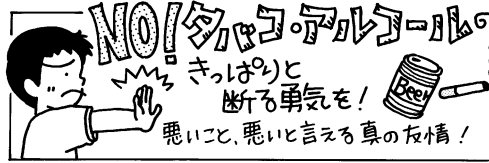 NO！タバコ・アルコール。
きっぱりと
断る勇気を！
Beer
悪いこと、悪いと言える真の友情！